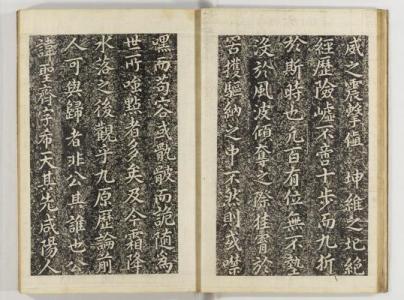 威之震擊值坤維之圮絕
經歷險巇不啻十步而九折
於斯時也凡百有位無不墊
沒於風波傾奪之際挂罥於
罟擭驅納之中不然則或噤
嘿而苟容或骫骳而詭隨為
世所嗤點者多矣及今霜降
水落之後觀乎九原歷論前
人可與歸者非公其誰也公
諱聖齊字希天其先咸陽人